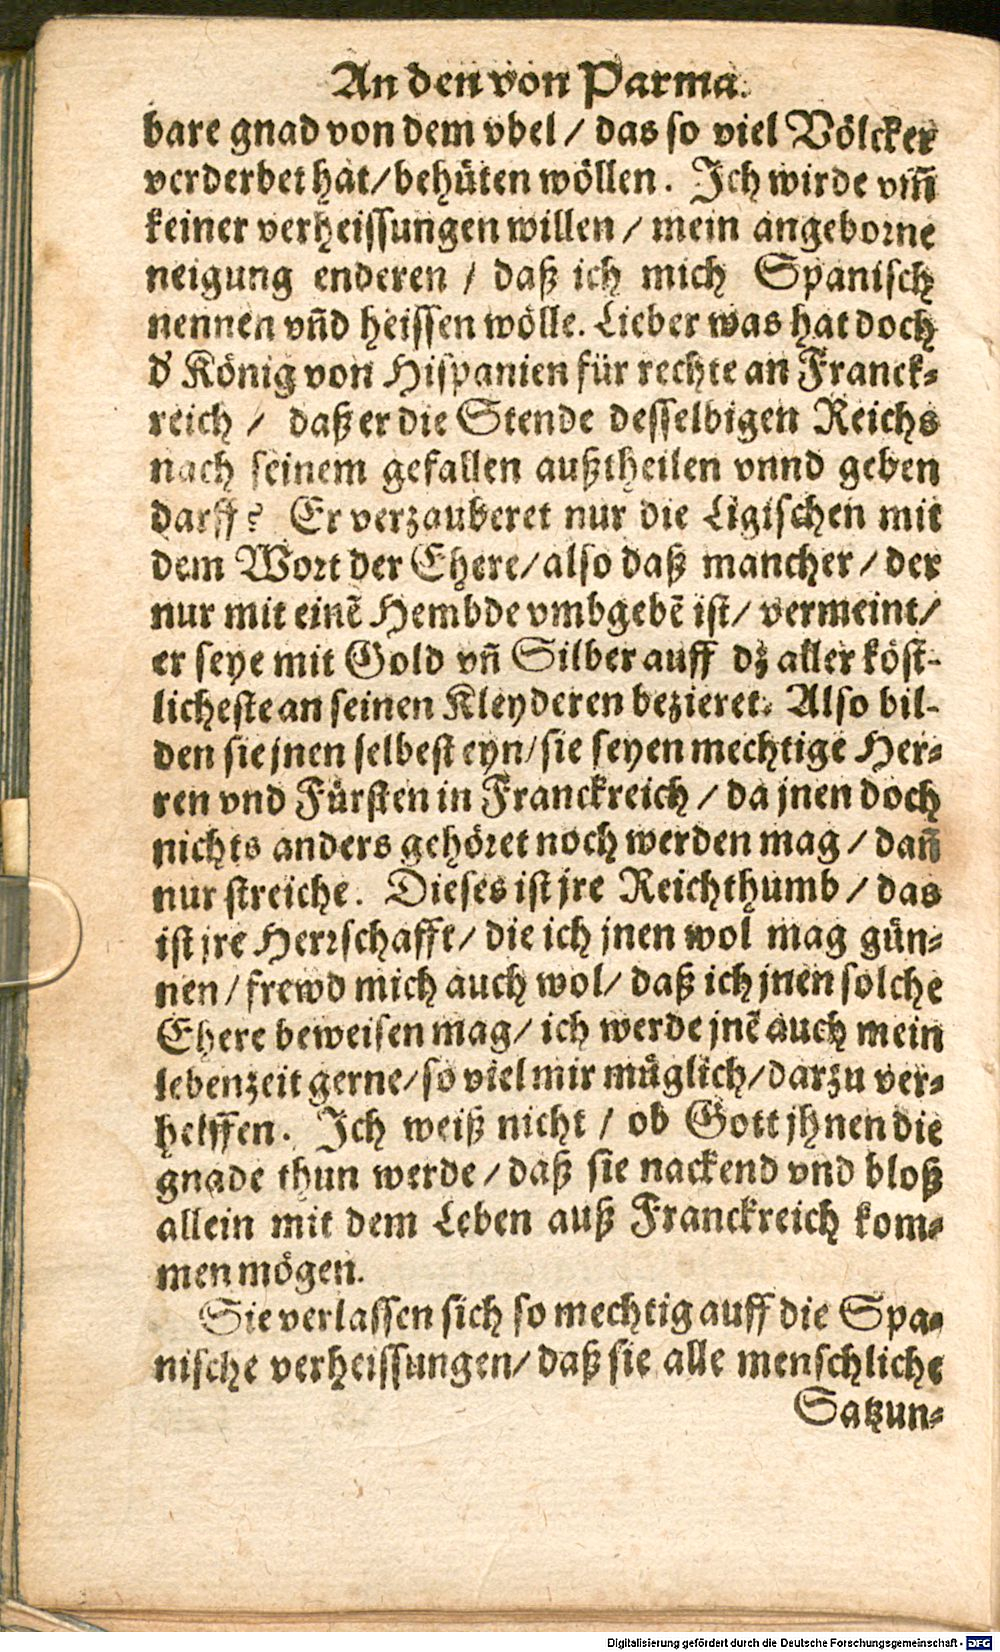 An den von Parma.
bare gnad von dem vbel / das so viel Völcker
verderbet hat/behüten wöllen. Ich wirde vm̃
keiner verheissungen willen / mein angeborne
neigung enderen / daß ich mich Spanisch
nennen vñd heissen wölle. Lieber was hat doch
d' König von Hispanien für rechte an Franck⸗
reich / daß er die Stende desselbigen Reichs
nach seinem gefallen außtheilen vnnd geben
darff? Er verzauberet nur die Ligischen mit
dem Wort der Ehere/also daß mancher / der
nur mit einẽ Hembde vmbgebẽ ist/ vermeint/
er seye mit Gold vñ Silber auff dz aller köst-
licheste an seinen Kleyderen bezieret. Also bil-
den sie jnen selbest eyn/sie seyen mechtige Her⸗
ren vnd Fürsten in Franckreich / da jnen doch
nichts anders gehöret noch werden mag / dañ
nur streiche. Dieses ist jre Reichthumb / das
ist jre Herrschafft/ die ich jnen wol mag gün⸗
nen / frewd mich auch wol/ daß ich jnen solche
Ehere beweisen mag/ ich werde jnẽ auch mein
lebenzeit gerne/so viel mir müglich/darzu ver⸗
helffen. Ich weiß nicht / ob Gott jhnen die
gnade thun werde / daß sie nackend vnd bloß
allein mit dem Leben auß Franckreich kom⸗
men mögen.
Sie verlassen sich so mechtig auff die Spa⸗
nische verheissungen/ daß sie alle menschliche
Satzun⸗
Digitalisierung gefördert durch die Deutsche Forschungsgemeinschaft - DFG